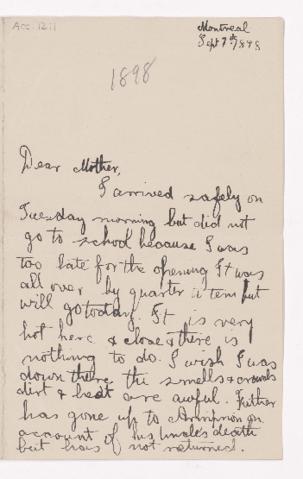 Acc. 1211
Montreal
Sept 7th/1898
1898
Dear Mother,
I arrived safely on
Tuesday morning but did not
go to school because I was
too late for the opening It was
all over by quarter to ten but
will go today. It is very
hot here & close & there is
nothing to do. I wish I was
down there the smells & crowds
dirt & heat are awful. Father
has gone up to Arnprior on
account of his Uncle's death
but has not returned.